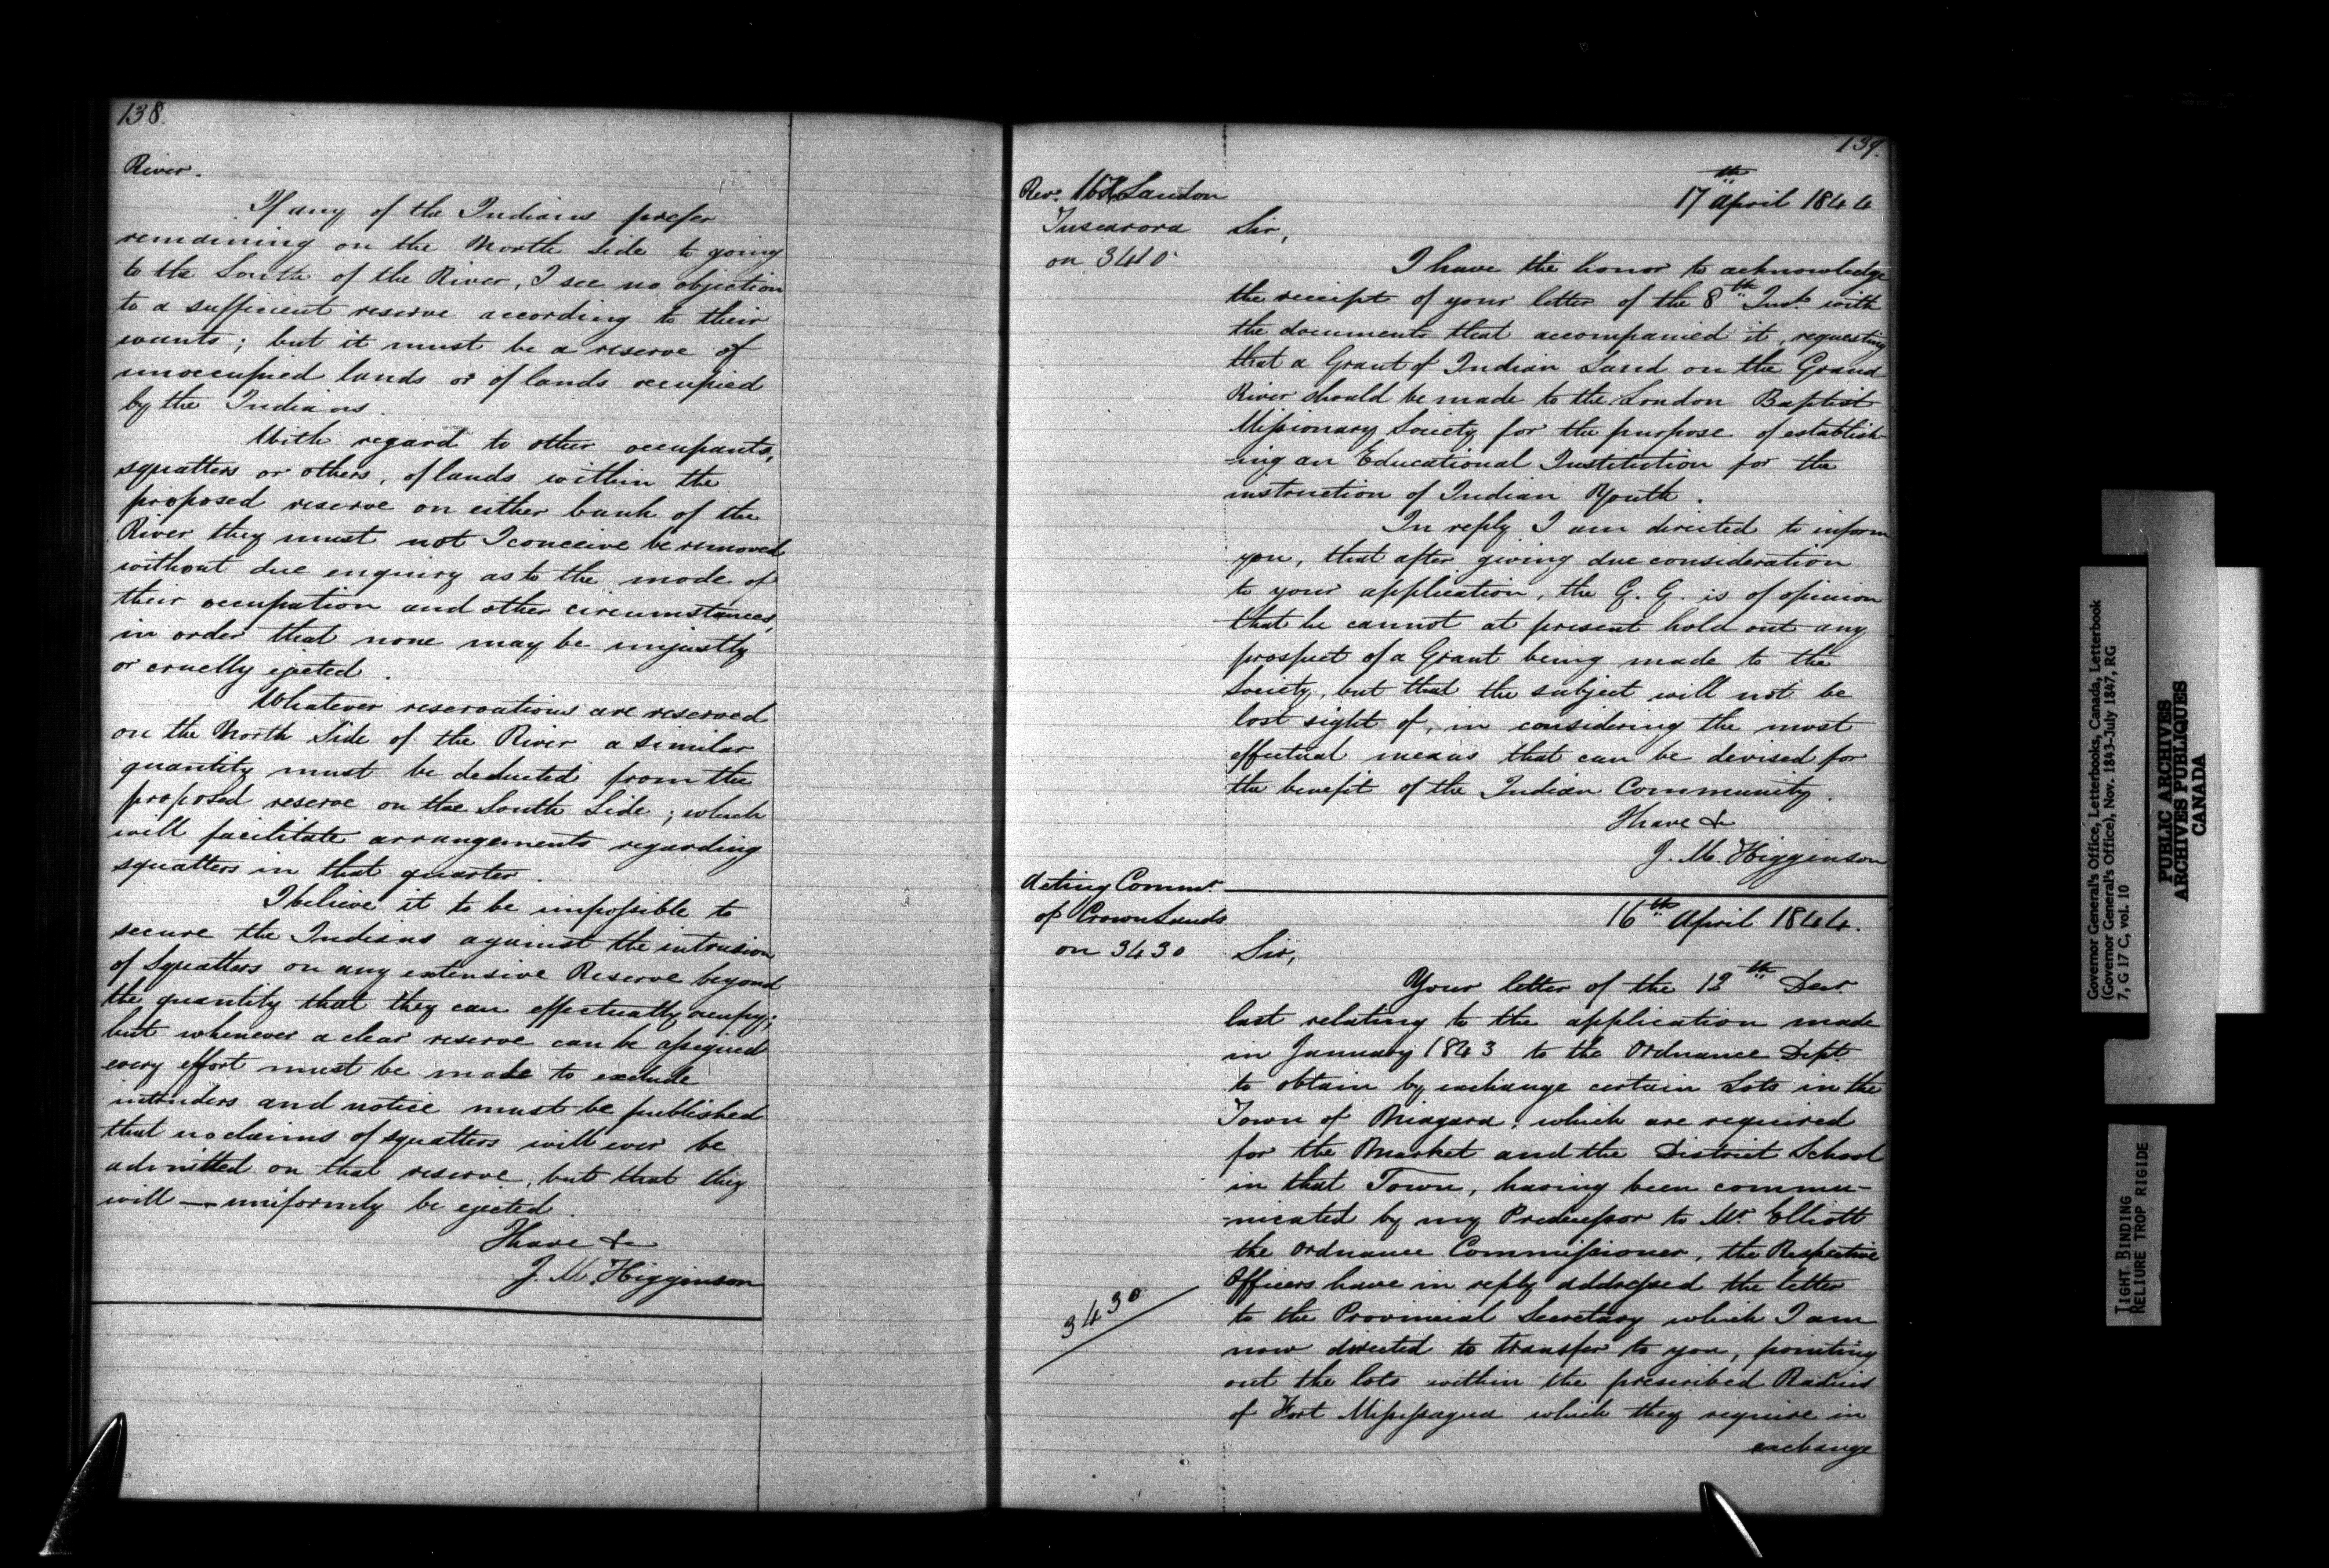 138.
River.
If any of the Indians prefer
remaining on the North Side to going
to the South of the River, I see no objection
to a sufficient reserve according to their
wants; but it must be a reserve of
unoccupied lands or of lands occupied
by the Indians.
With regard to other occupants,
squatters or others, of lands within the
proposed reserve on either bank of the
River they must not I conceive be removed
without due enquiry as to the mode of
their occupation and other circumstances,
in order that none may be unjustly
or cruelly ejected.
Whatever reservations are reserved
on the North Side of the River a similar
quantity must be deducted from the
proposed reserve on the South Side; which
will facilitate arrangements regarding
squatters in that quarter.
I believe it to be impossible to
secure the Indians against the intrusion
of Squatters on any extensive Reserve beyond
the quantity that they can effectually occupy;
but whenever a clear reserve can be assigned
every effort must be made to exclude
intruders and notice must be published
that no claims of squatters will ever be
admitted on that reserve, but that they
will — uniformly be ejected.
I have &c
J. M. Higginson
139.
Rev. Landon
Tuscarora
on 3410
17th April 1844
Sir,
I have the honor to acknowledge
the receipt of your letter of the 8th Inst. with
the documents that accompanied it, requesting
that a Grant of Indian Land on the Grand
River should be made to the London Baptist
Missionary Society for the purpose of establish-
-ing an Educational Institution for the
instruction of Indian Youth.
In reply I am directed to inform
you, that after giving due consideration
to your application, the G. G. is of opinion
that he cannot at present hold out any
prospect of a Grant being made to the
Society, but that the subject will not be
lost sight of, in considering the most
effectual means that can be devised for
the benefit of the Indian Community.
I have &
J. M. Higginson
Acting Commr.
of Crown Lands
on 3430
16th April 1844.
Sir,
Your letter of the 13th Decr.
last relating to the application made
in January 1843 to the Ordnance Dept.
to obtain by exchange certain Lots in the
Town of Niagara, which are required
for the Market and the District School
in that Town, having been commu-
-nicated by my Predecessor to Mr. Elliott
the Ordnance Commissioner, the Respective
Officers have in reply addressed the letter
to the Provincial Secretary which I am
now directed to transfer to you, pointing
out the lots within the prescribed Radius
of Fort Mississagua which they require in
exchange
3430
Governor General's Office, Letterbooks, Canada, Letterbook
(Governor General's Office), Nov. 1843-July 1847, RG
7, G 17 C, vol. 10
PUBLIC ARCHIVES
ARCHIVES PUBLIQUES
CANADA
TIGHT BINDING
RELIURE TROP RIGIDE